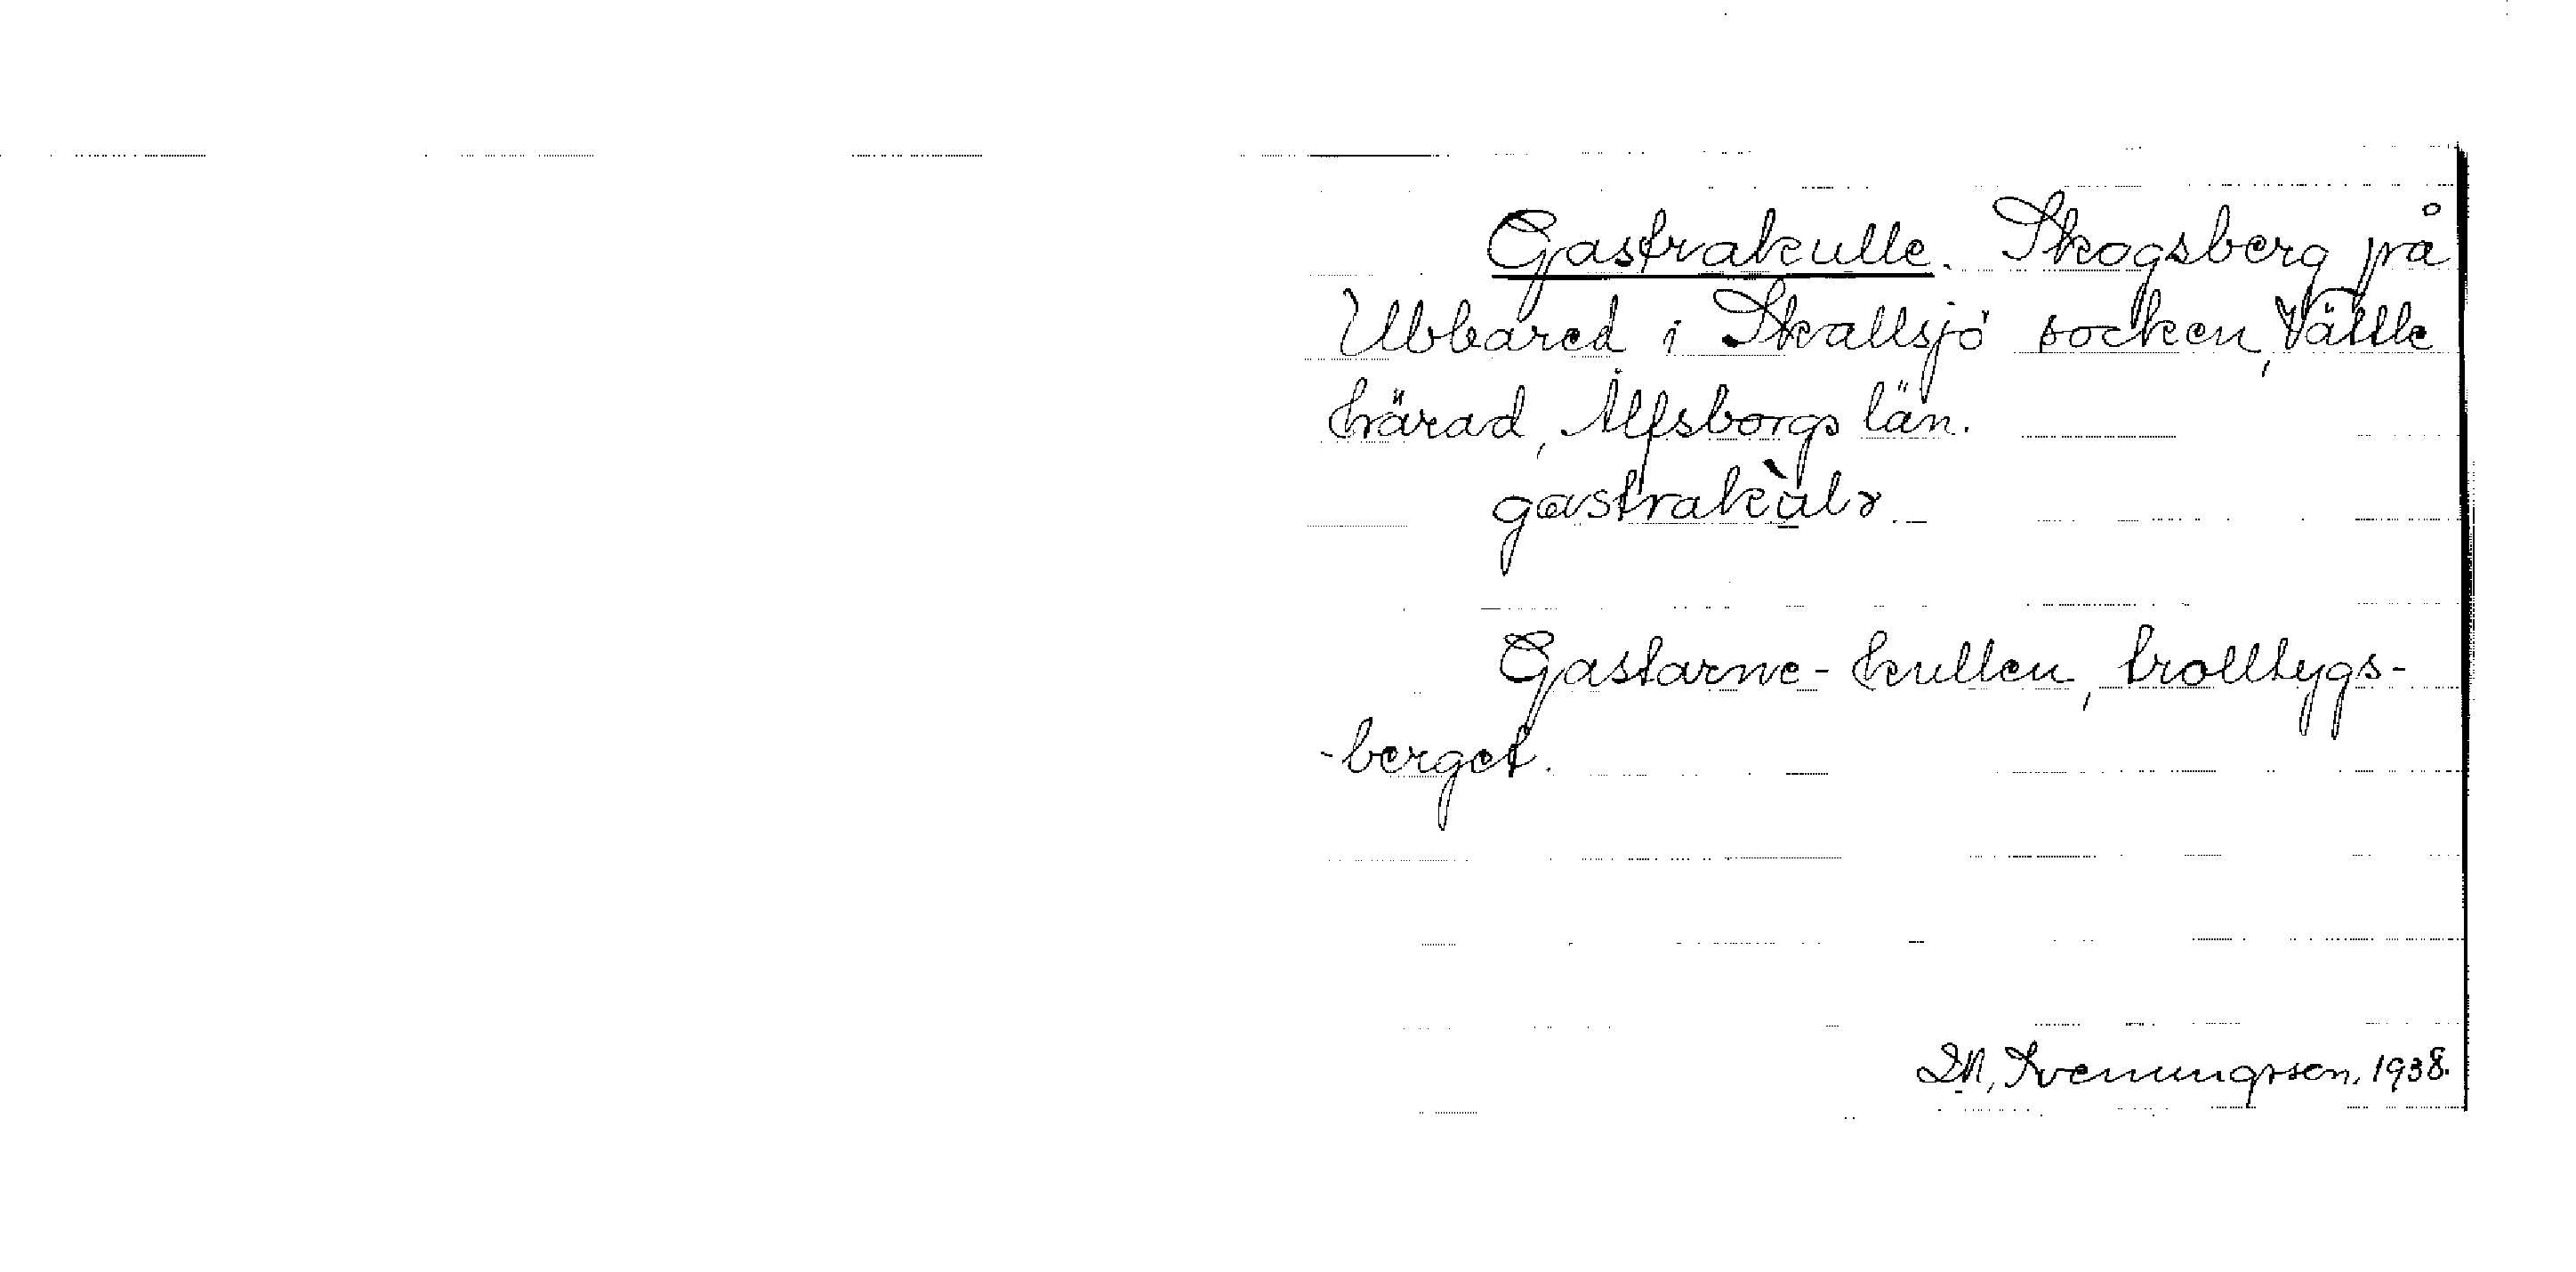 Gastrakulle. Skogsberg på
Ubbared i Skallsjö socken, Vättle
härad, Älfsborgs län.
gastrakùlɤ
Gastarne-kullen, trolltygs-
-berget.
D.N. Svenungsson, 1938.